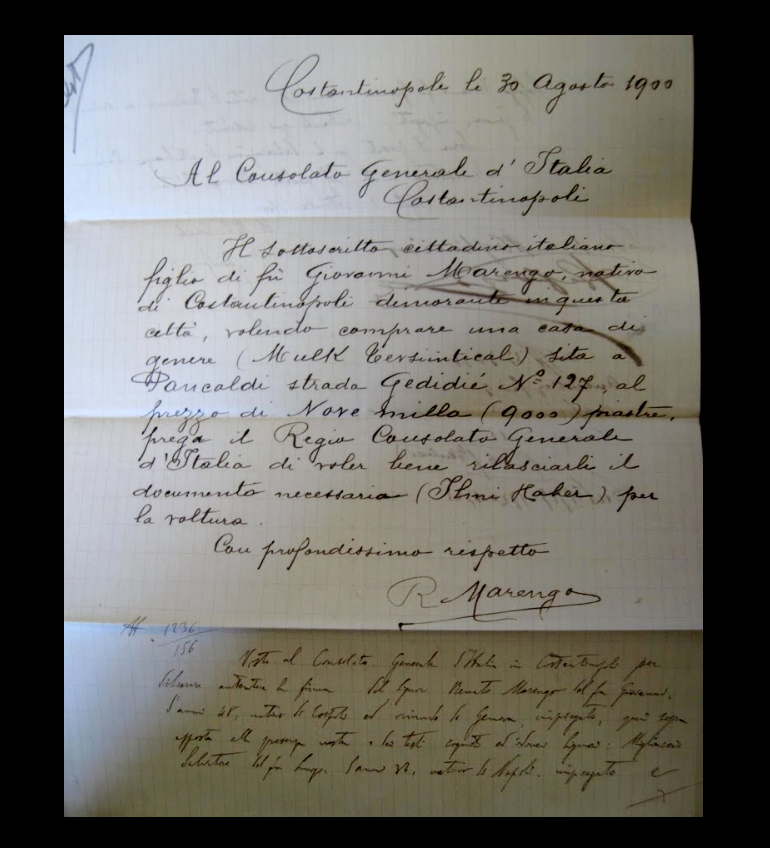 Costantinopole le 30 Agosto 1900
Al Consolato Generale d'Italia
Costantinopoli
Il sottoscritto cittadino italiano
figlio di fù Giovanni Marengo, nativo
di Costantinopoli demorante in questa
città, volendo comprare una casa di
genere (Mulk ) sita a
Pancaldi strada Gedidié Nº 127, al
prezzo di Nove milla (9000) piastre,
prega il Regio Consolato Generale
d'Italia di voler bene rilasciarli il
documento necessario (Ilmi Haber) per
la voltura.
Con profondissimo rispetto
R Marengo
1236
156
Visto al Consolato Generale d'Italia in per
autentica la firma del Signor Marengo del fu Giovanni,
d'anni 48, nativo di ed di Genova, impiegato, qui
alla presenza dei testi cogniti ed idonei Signori:
Salvatore del fu Luigi, d'anni nativo di Napoli, impiegato e